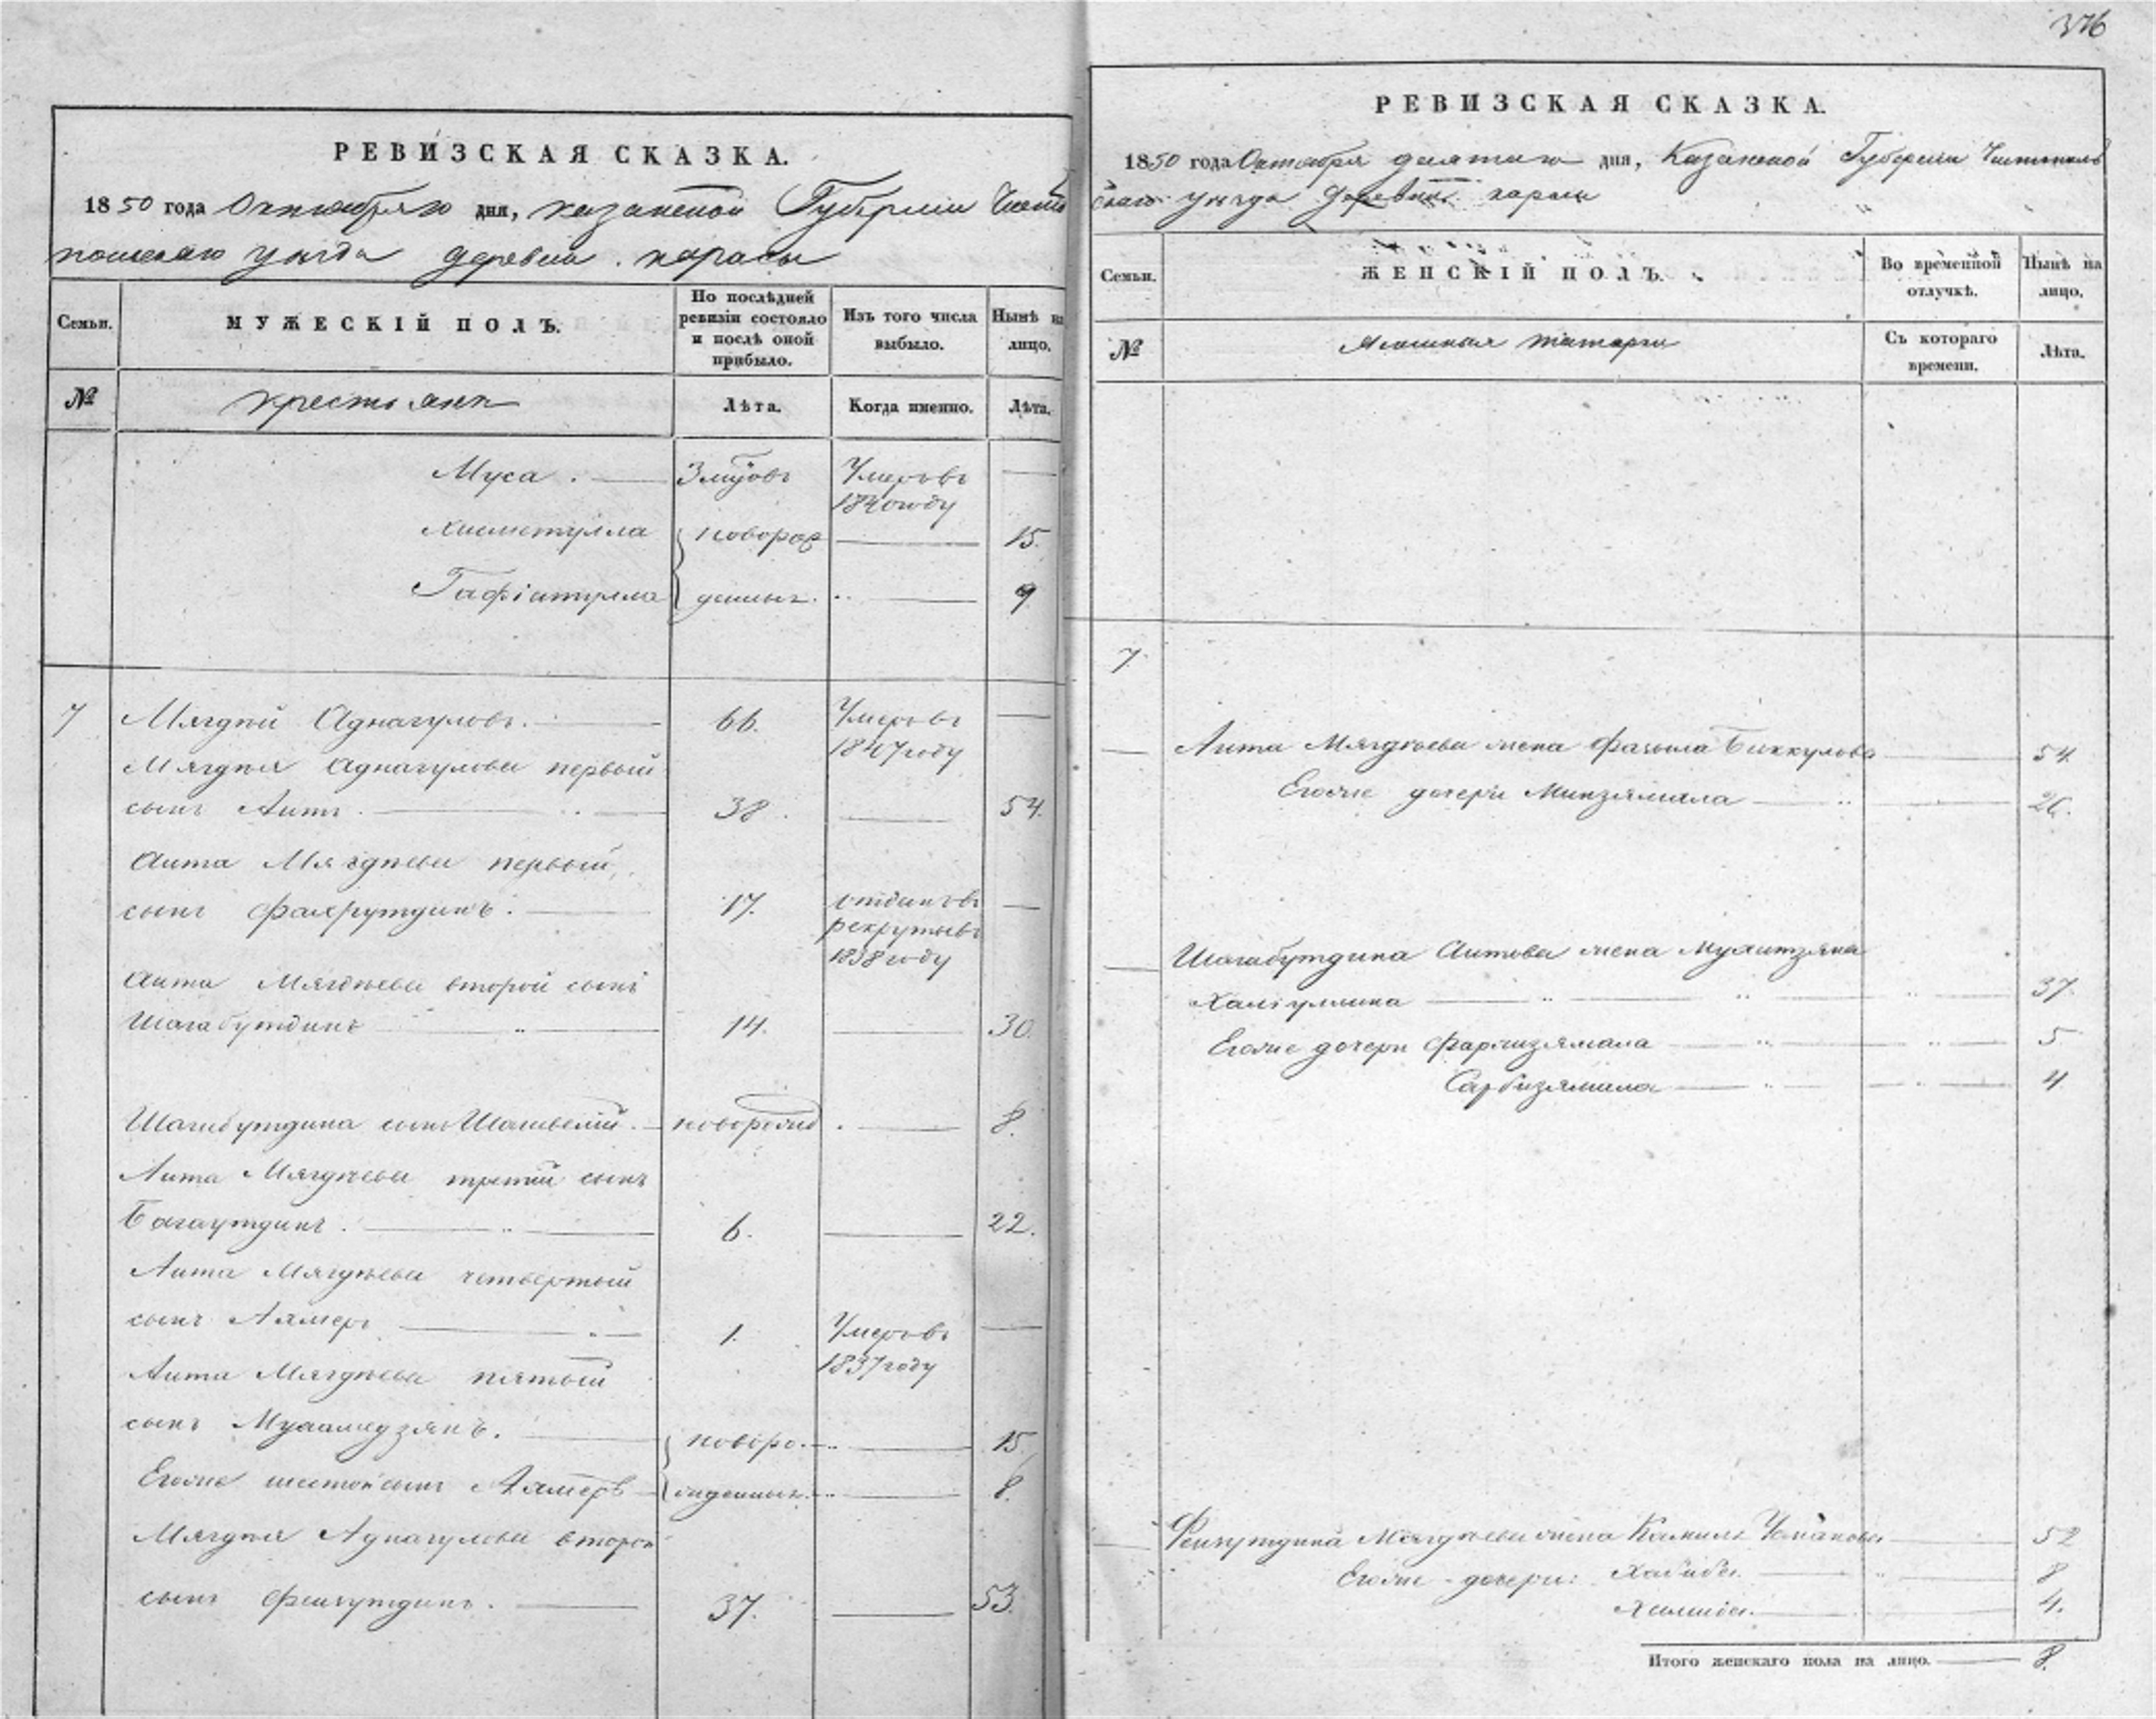 РЕВИЗСКАЯ СКАЗКА.
1850 года Октября дня, казанской Губернии Чисто
польскаго уезда деревни карасы
Семьи.
МУЖЕСКІЙ ПОЛЪ.
По послѣдней ревизіи состояло и послѣ оной прибыло.
Изъ того числа выбыло.
Нынѣ на лицо.
№
крестьянъ
Лѣта.
Когда именно.
Лѣта.
Муса Умеръ въ
1840 году
Хисметулла новорож 15.
Гафіатулла денныхъ 9
7 Мягдѣй Аднагуловъ. 66. Умеръ въ
1847 году
Мягдѣя Аднагулова первый
сынъ Аитъ 38. 54.
Аита Мягдѣева первый
сынъ Фахрутдинъ. 17. отданъ въ
рекруты въ
1838 году
Аита Мягдѣева второй сынъ
Шагабутдинъ 14. 30.
Шагабутдина сынъ Шагивелій. новорожд 8.
Аита Мягдѣева третій сынъ
Багаутдинъ. 6. 22.
Аита Мягдѣева четвертый
сынъ 1. Умеръ въ
1837 году
Аита Мягдѣева пятый
сынъ Мухамедзянъ. новоро 15.
Егоже шестой сынъ жденныхъ. 8.
Мягдѣя Аднагулова второй
сынъ 37. 53.
376
РЕВИЗСКАЯ СКАЗКА.
1850 года Октября дня, Казанской Губерніи Чистополь
скаго уѣзда Деревни карасы
Семьи.
ЖЕНСКІЙ ПОЛЪ.
Во временной отлучкѣ.
Нынѣ на лицо.
№
татарки
Съ котораго времени.
Лѣта.
7.
Аита Мягдѣева жена Биккулова 54.
Егоже дочери Минзямала 26.
Шагабутдина Аитова жена
37.
Егоже дочери 5
Сарбизямала 4
Мягдѣева жена 52
Егоже дочери: Хабиба. 8
4.
Итого женскаго пола на лицо. 8.